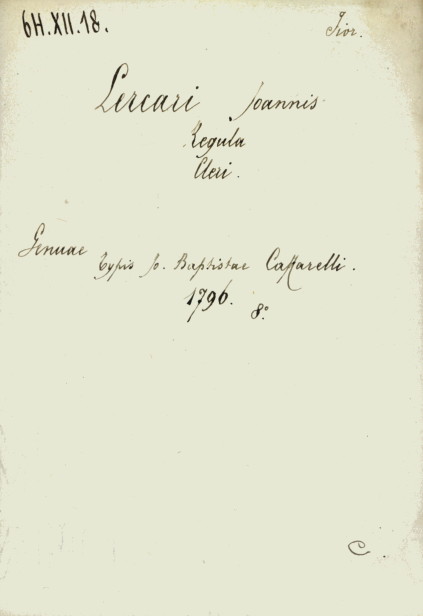 6H.XII.18.
Fior.
Lercari Joannis
Regula
Cleri.
Genuae Typis Jo. Baptistae Caffarelli.
1796. 8°
C.